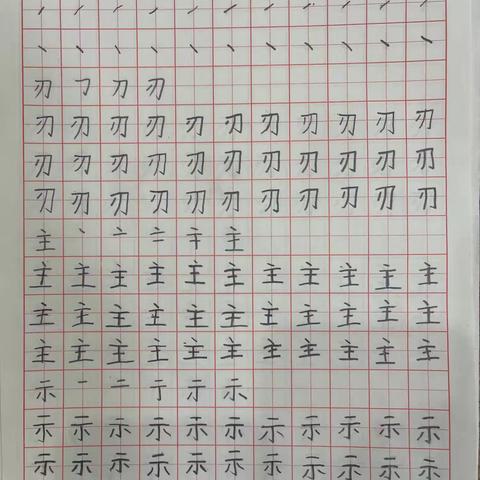 丶 丶 丶 丶 丶 丶 丶 丶 丶 丶 丶
刃 ㇆ 刀 刃
刃 刃 刃 刃 刃 刃 刃 刃 刃 刃 刃
刃 刃 刃 刃 刃 刃 刃 刃 刃 刃 刃
刃 刃 刃 刃 刃 刃 刃 刃 刃 刃 刃
主 丶 亠 主
主 主 主 主 主 主 主 主 主 主 主
主 主 主 主 主 主 主 主 主 主 主
主 主 主 主 主 主 主 主 主 主 主
示 一 二 亍 示
示 示 示 示 示 示 示 示 示 示 示
示 示 示 示 示 示 示 示 示 示 示